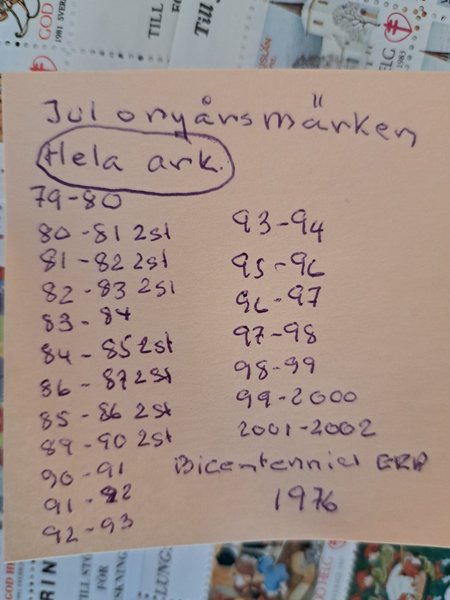 GOD
1981 SVERI
TILL
Till S
1985
Jul o nyårsmärken
Hela ark.
79-80
80-81 2st
81-82 2st
82-83 2st
83-84
84-85 2st
86-87 2st
85-86 2st
89-90 2st
90-91
91-92
92-93
93-94
95-96
96-97
97-98
98-99
99-2000
2001-2002
Bicentenniel
1976
GOD HE
TILL STÖ
SKNING
LUNG